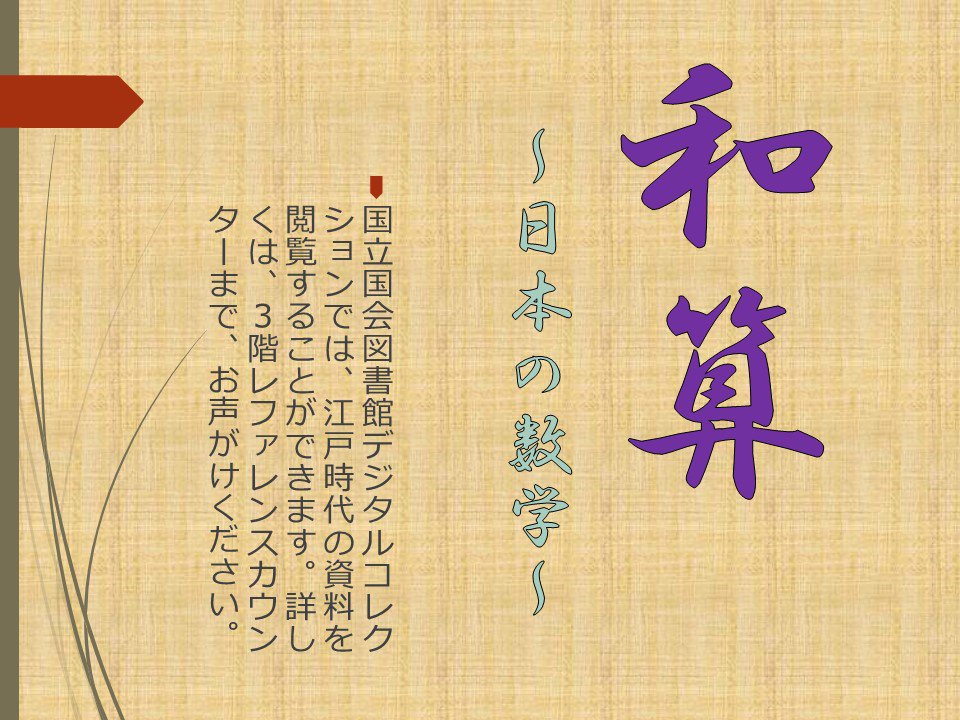 和算
～日本の数学～
国立国会図書館デジタルコレク
ションでは、江戸時代の資料を
閲覧することができます。詳し
くは、３階レファレンスカウン
ターまで、お声がけください。